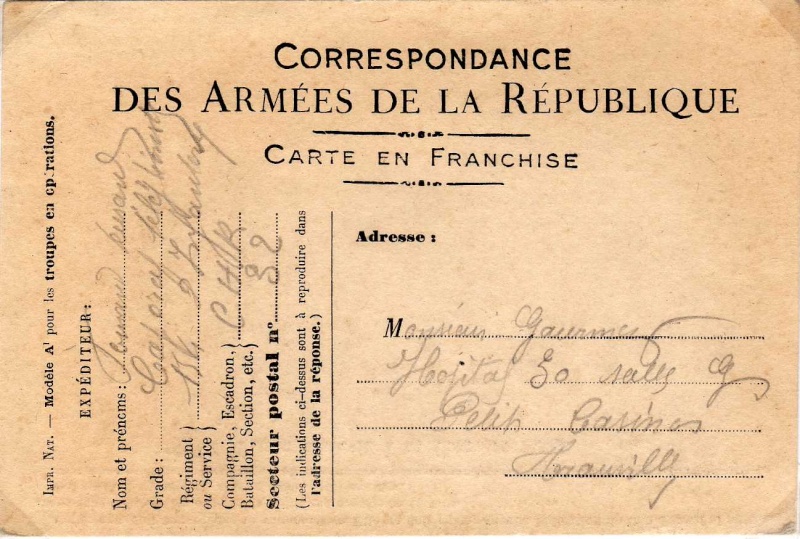 CORRESPONDANCE
DES ARMÉES DE LA RÉPUBLIQUE
CARTE EN FRANCHISE
IMPR. NAT. — Modèle A¹ pour les troupes en opérations.
EXPÉDITEUR:
Nom et prénoms:
Grade: Caporal
Régiment ou Service } 156 d'Infanterie
Compagnie, Escadron, Bataillon, Section, etc.) } CHR
Secteur postal n° 32
(Les indications ci-dessus sont à reproduire dans
l'adresse de la réponse.)
Adresse:
Monsieur
30 salle G
Petit Casino